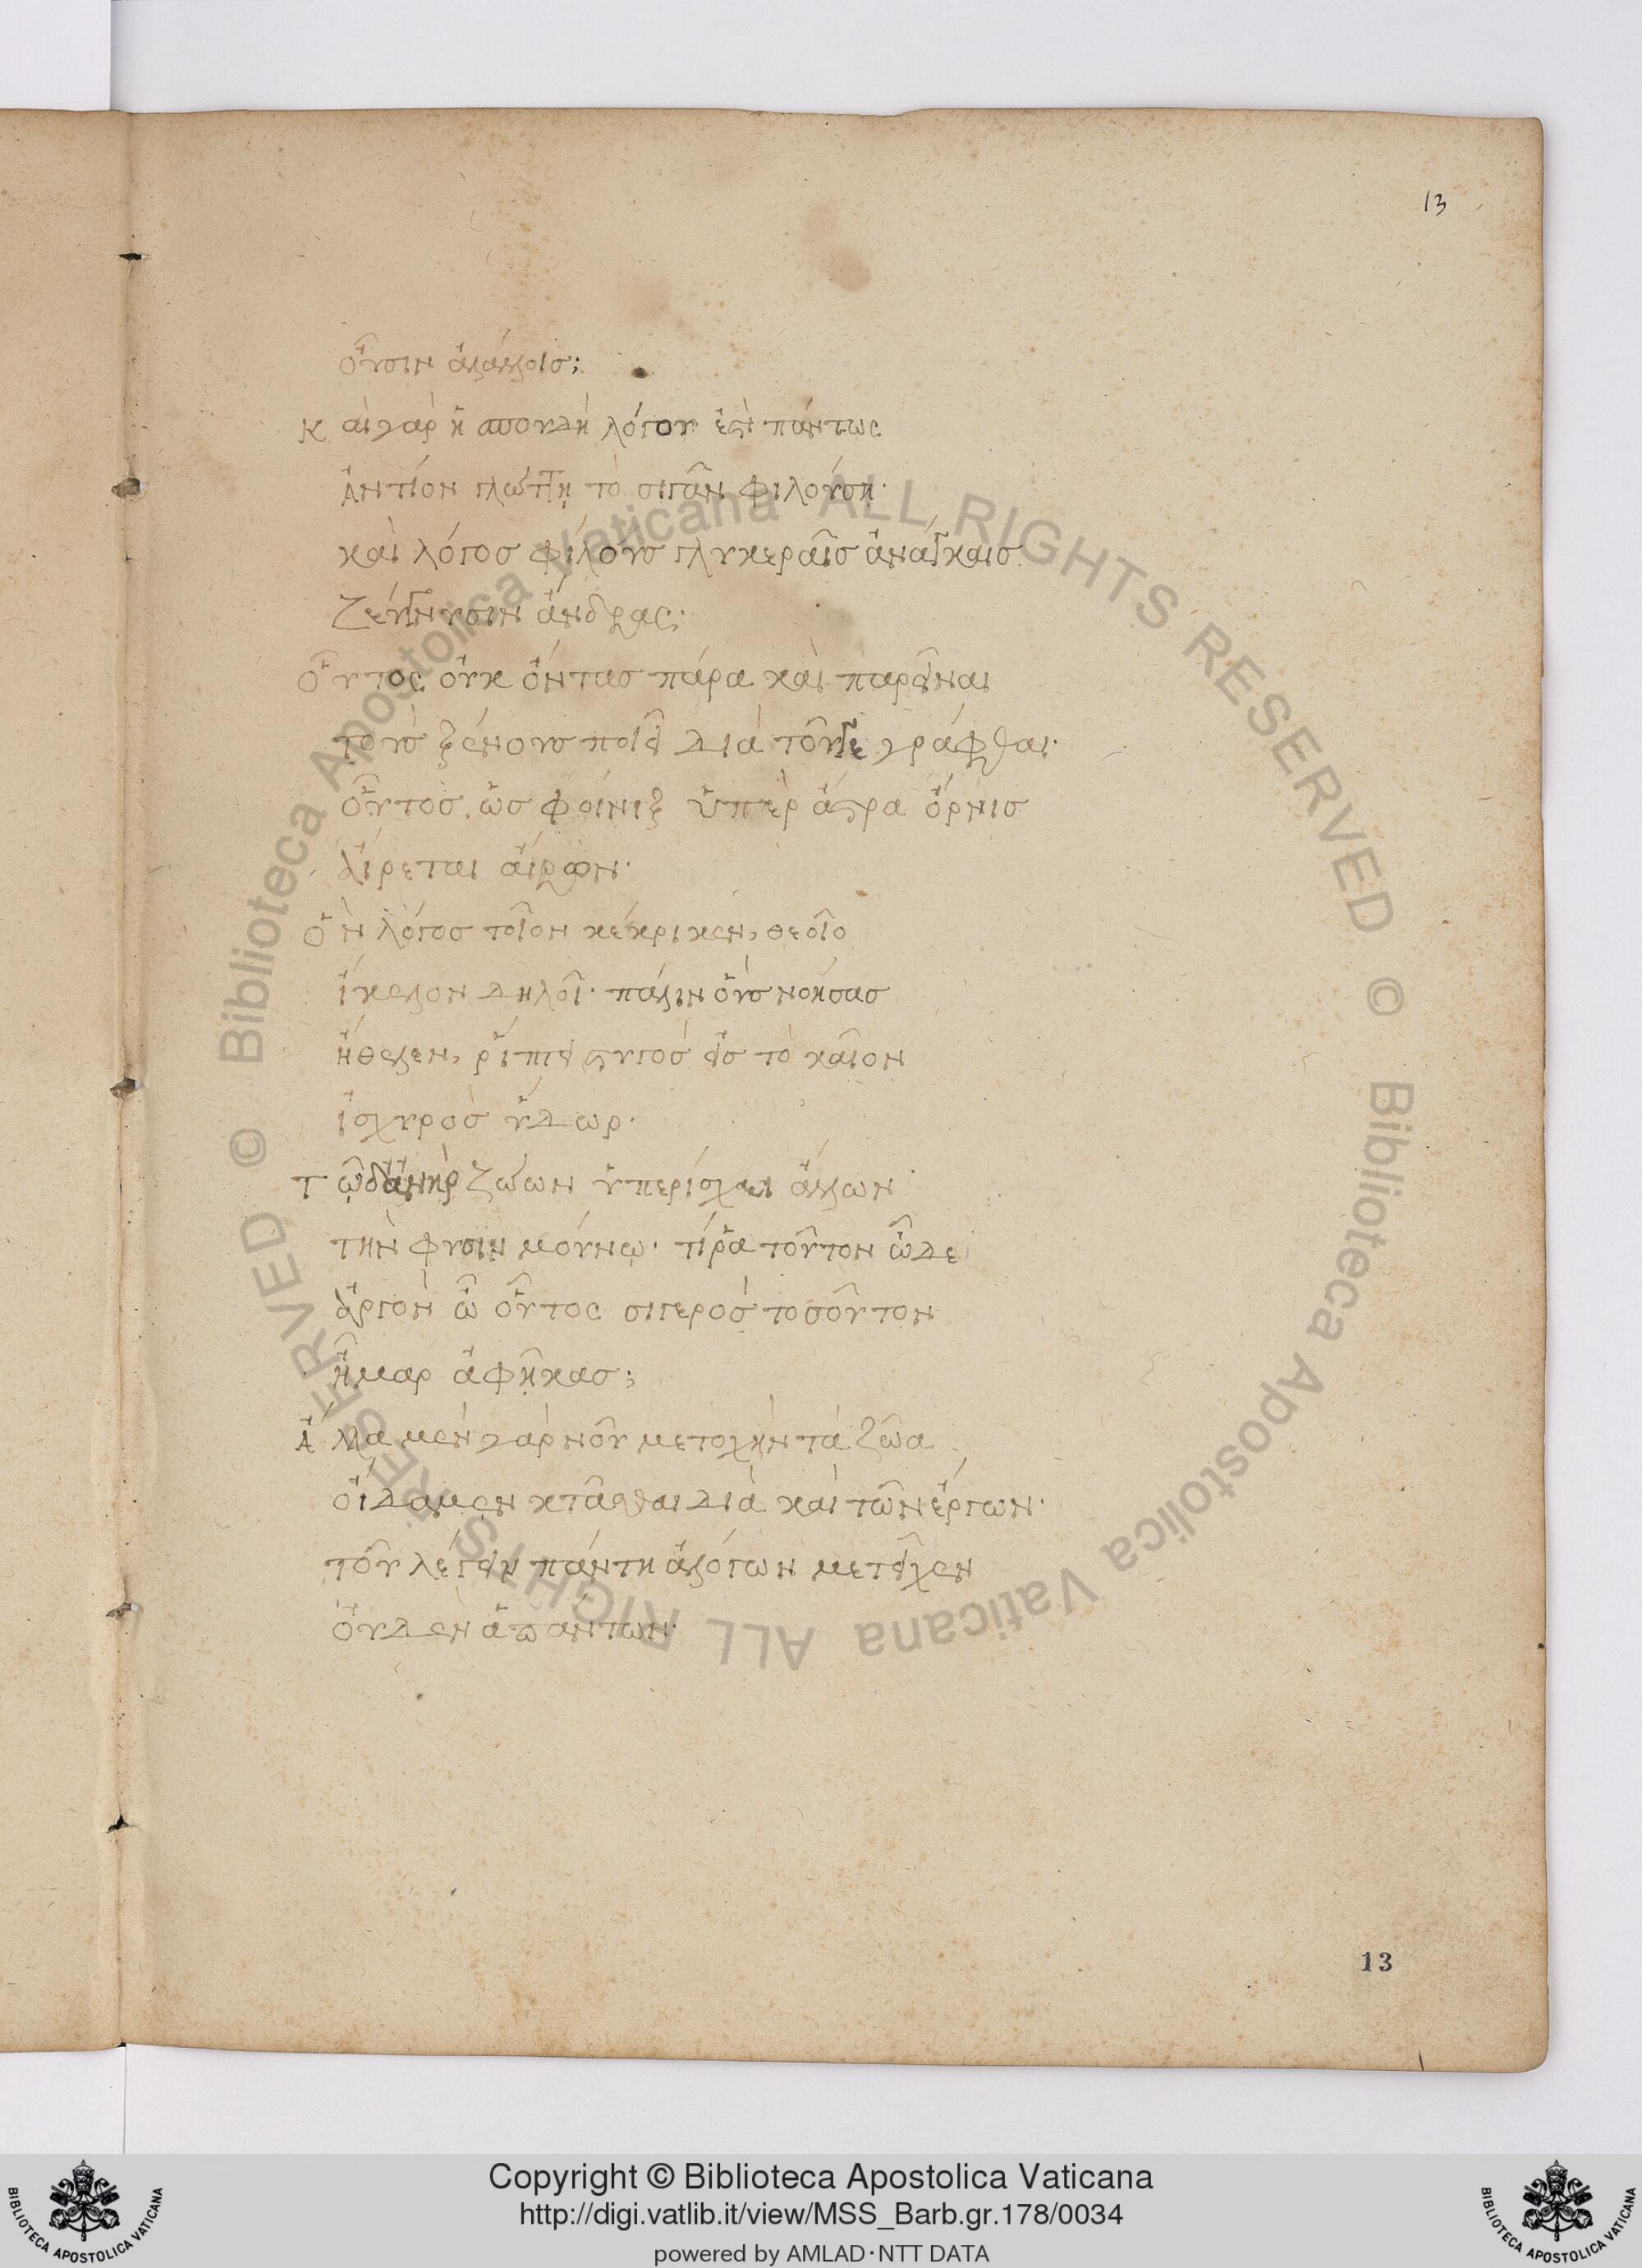 13
οὖσιν ἀλλάλλοις;
Καὶ γὰρ ἡ σπουδὴ λόγου ἐστὶ πάντως
Ἀντίον γλώττῃ τὸ σιγᾶν φιλούσῃ·
καὶ λόγος φίλους γλυκεραῖς ἀνάγκαις
ζεύγνυσιν ἄνδρας·
Οὗτος οὐκ ὄντας πάρα καὶ παρεῖναι
τοὺς ξένους ποιεῖ διὰ τοῦγε γράφθαι·
οὗτος, ὡς φοίνιξ ὑπὲρ ἄστρα ὄρνις
αἴρεται αἴρων·
Ὃν λόγος τοῖον κέκρικεν, θεοῖο
ἴκελον δηλοῖ· πάλιν οὓς νοήσας
ἤθελεν, ῥίπτει στυγὸς εἰς τὸ καῖον
ἰσχυρὸς ὕδωρ·
Τῷδ' ἀνὴρ ζώων ὑπερίσχει ἄλλων
τὴν φύσιν μούνῳ· τίῤα τοῦτον ὧδε
ἀργὸν ὦ οὗτος σιγερὸς τοσοῦτον
ἦμαρ ἀφῆκας;
Ἄλλα μὲν γὰρ νοῦ μετοχὴν τὰ ζῶα
οἴδαμεν κτᾶσθαι διὰ καὶ τῶν ἔργων·
τοῦ λέγειν πάντη ἀλόγων μετεῖχεν
οὐδὲν ἁπάντων·
13
Copyright © Biblioteca Apostolica Vaticana
http://digi.vatlib.it/view/MSS_Barb.gr.178/0034
powered by AMLAD·NTT DATA
BIBLIOTECA APOSTOLICA VATICANA
BIBLIOTECA APOSTOLICA VATICANA
© Biblioteca Apostolica Vaticana ALL RIGHTS RESERVED
© Biblioteca Apostolica Vaticana ALL RIGHTS RESERVED